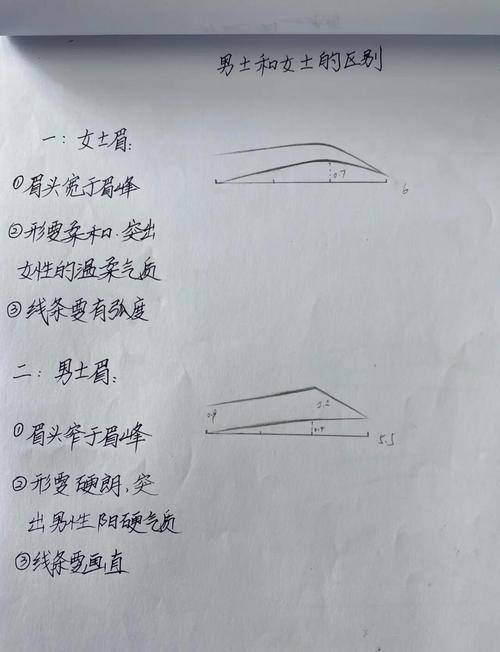 男士和女士的区别
一：女士眉：
①眉头宽于眉峰
②形要柔和．突出
女性的温柔气质
③线条要有弧度
0.7
6
二：男士眉：
①眉头窄于眉峰
②形要硬朗，突
出男性阳硬气质
③线条要画直
5.5